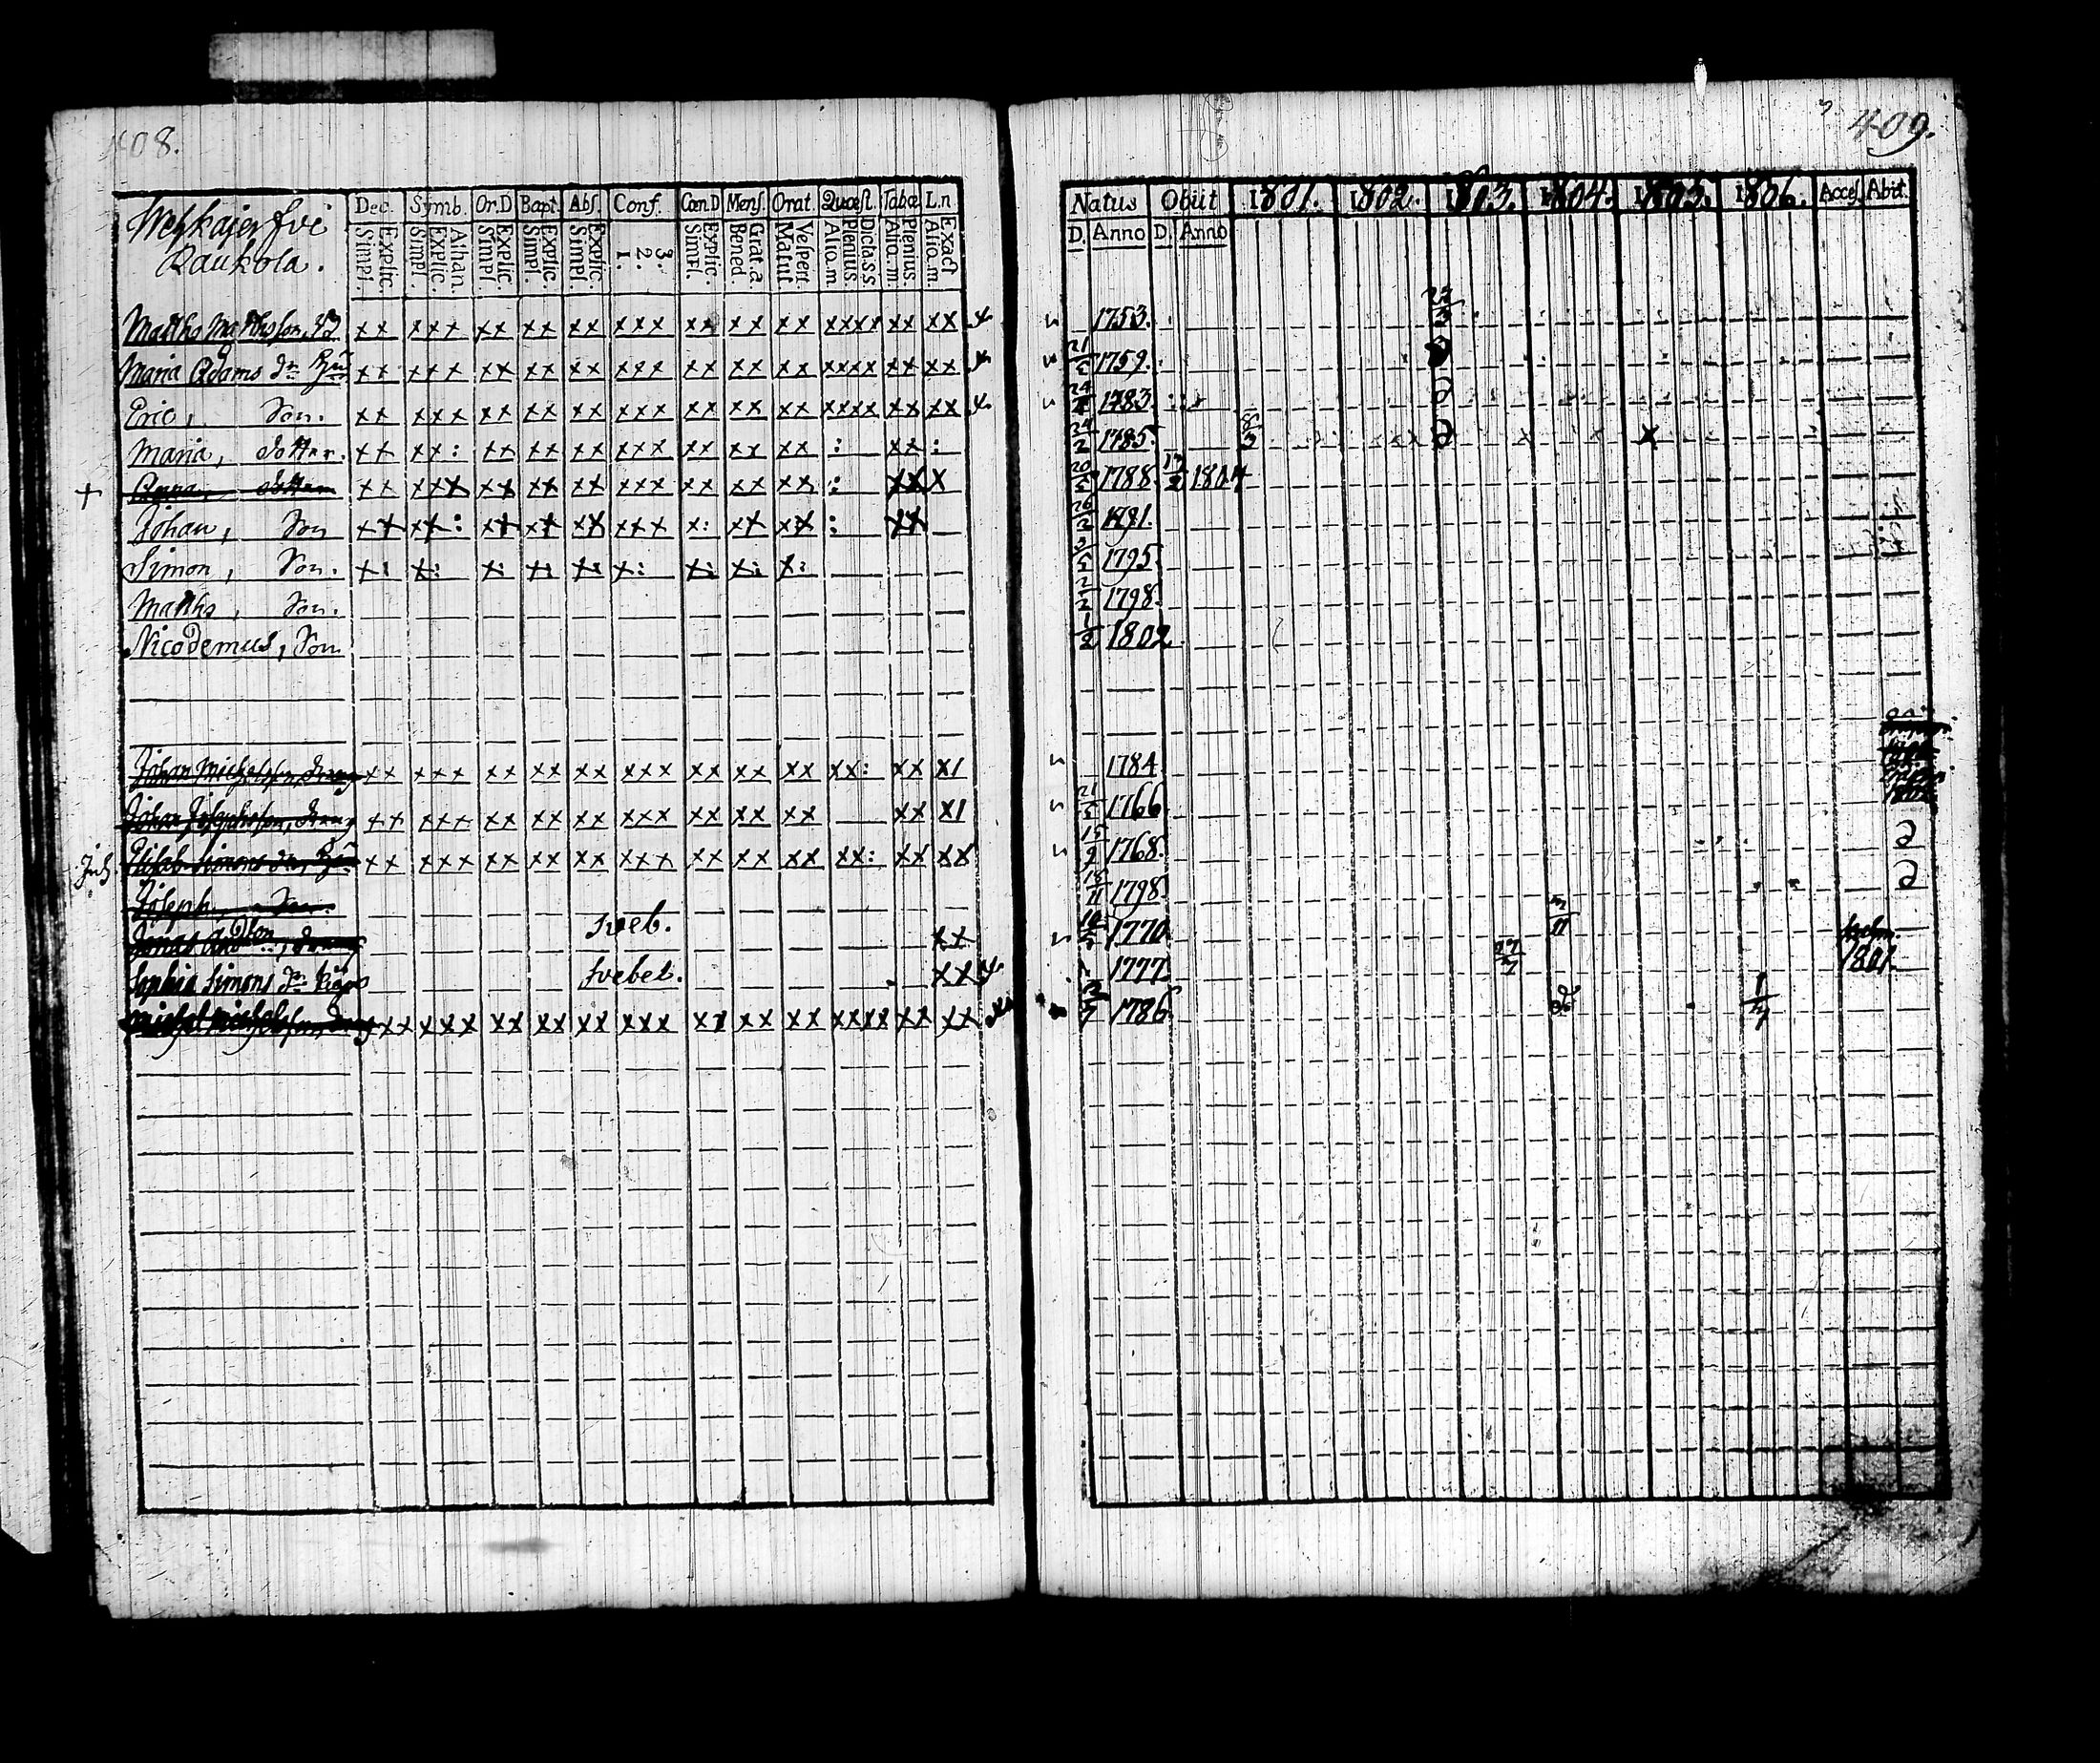 408.
Dec. Symb. Or.D Bapt. Abs. Conf. Cœn.D Mens. Orat. Quæst. Tabæ L.n
Raukola.
Explic. Simpl. Athan. Explic. Simpl. Explic. Simpl. Explic. Simpl. Explic. Simpl. 3. 2. 1. Explic. Simpl. Grat.a Bened. Vespert Matut. Dicta SS Plenius. Alio.m Plenius. Alio.m. Exact Alio.m.
Matths Mattsson, xx xxx xx xx xx xxx xx xx xx xxxx xx xx
Maria Adams dr xx xxx xx xx xx xxx xx xx xx xxxx xx xx
Eric, Son. xx xxx xx xx xx xxx xx xx xx xxxx xx xx
Maria, dotter. xx xx: xx xx xx xxx xx xx xx : xx :
+ Anna, dotter xx xxx xx xx xx xxx xx xx xx : xx x
Johan, Son xx xx: xx xx xx xxx x: xx xx : xx
Simon, Son. x: x: x: x: x: x: x: x: x:
Matths, Son.
Nicodemus, Son
Johan Michelsson, dreng xx xxx xx xx xx xxx xx xx xx xx: xx x1
Johan Josephsson, dreng xx xxx xx xx xx xxx xx xx xx xx x1
Elisab. Simons dr, xx xxx xx xx xx xxx xx xx xx xx: xx xx
Joseph, Son.
Jonas dreng sveb. xx
Sophia Simons dr piga svebet. xx
Michel Michelsson, dreng xx xxx xx xx xx xxx xx xx xx xxxx xx xx
409.
Natus Obiit 1801. 1802. 1803. 1804. 1805. 1806. Acces. Abit.
D. Anno D. Anno
1753.
21/5 1759.
24/4 1783.
24/2 1785.
20/5 1788. 1804
26/2 1791.
1795.
2/2 1798.
1/2 1802.
1784
21/5 1766
15/9 1768.
18/11 1798.
1770
1777
1786
1801.